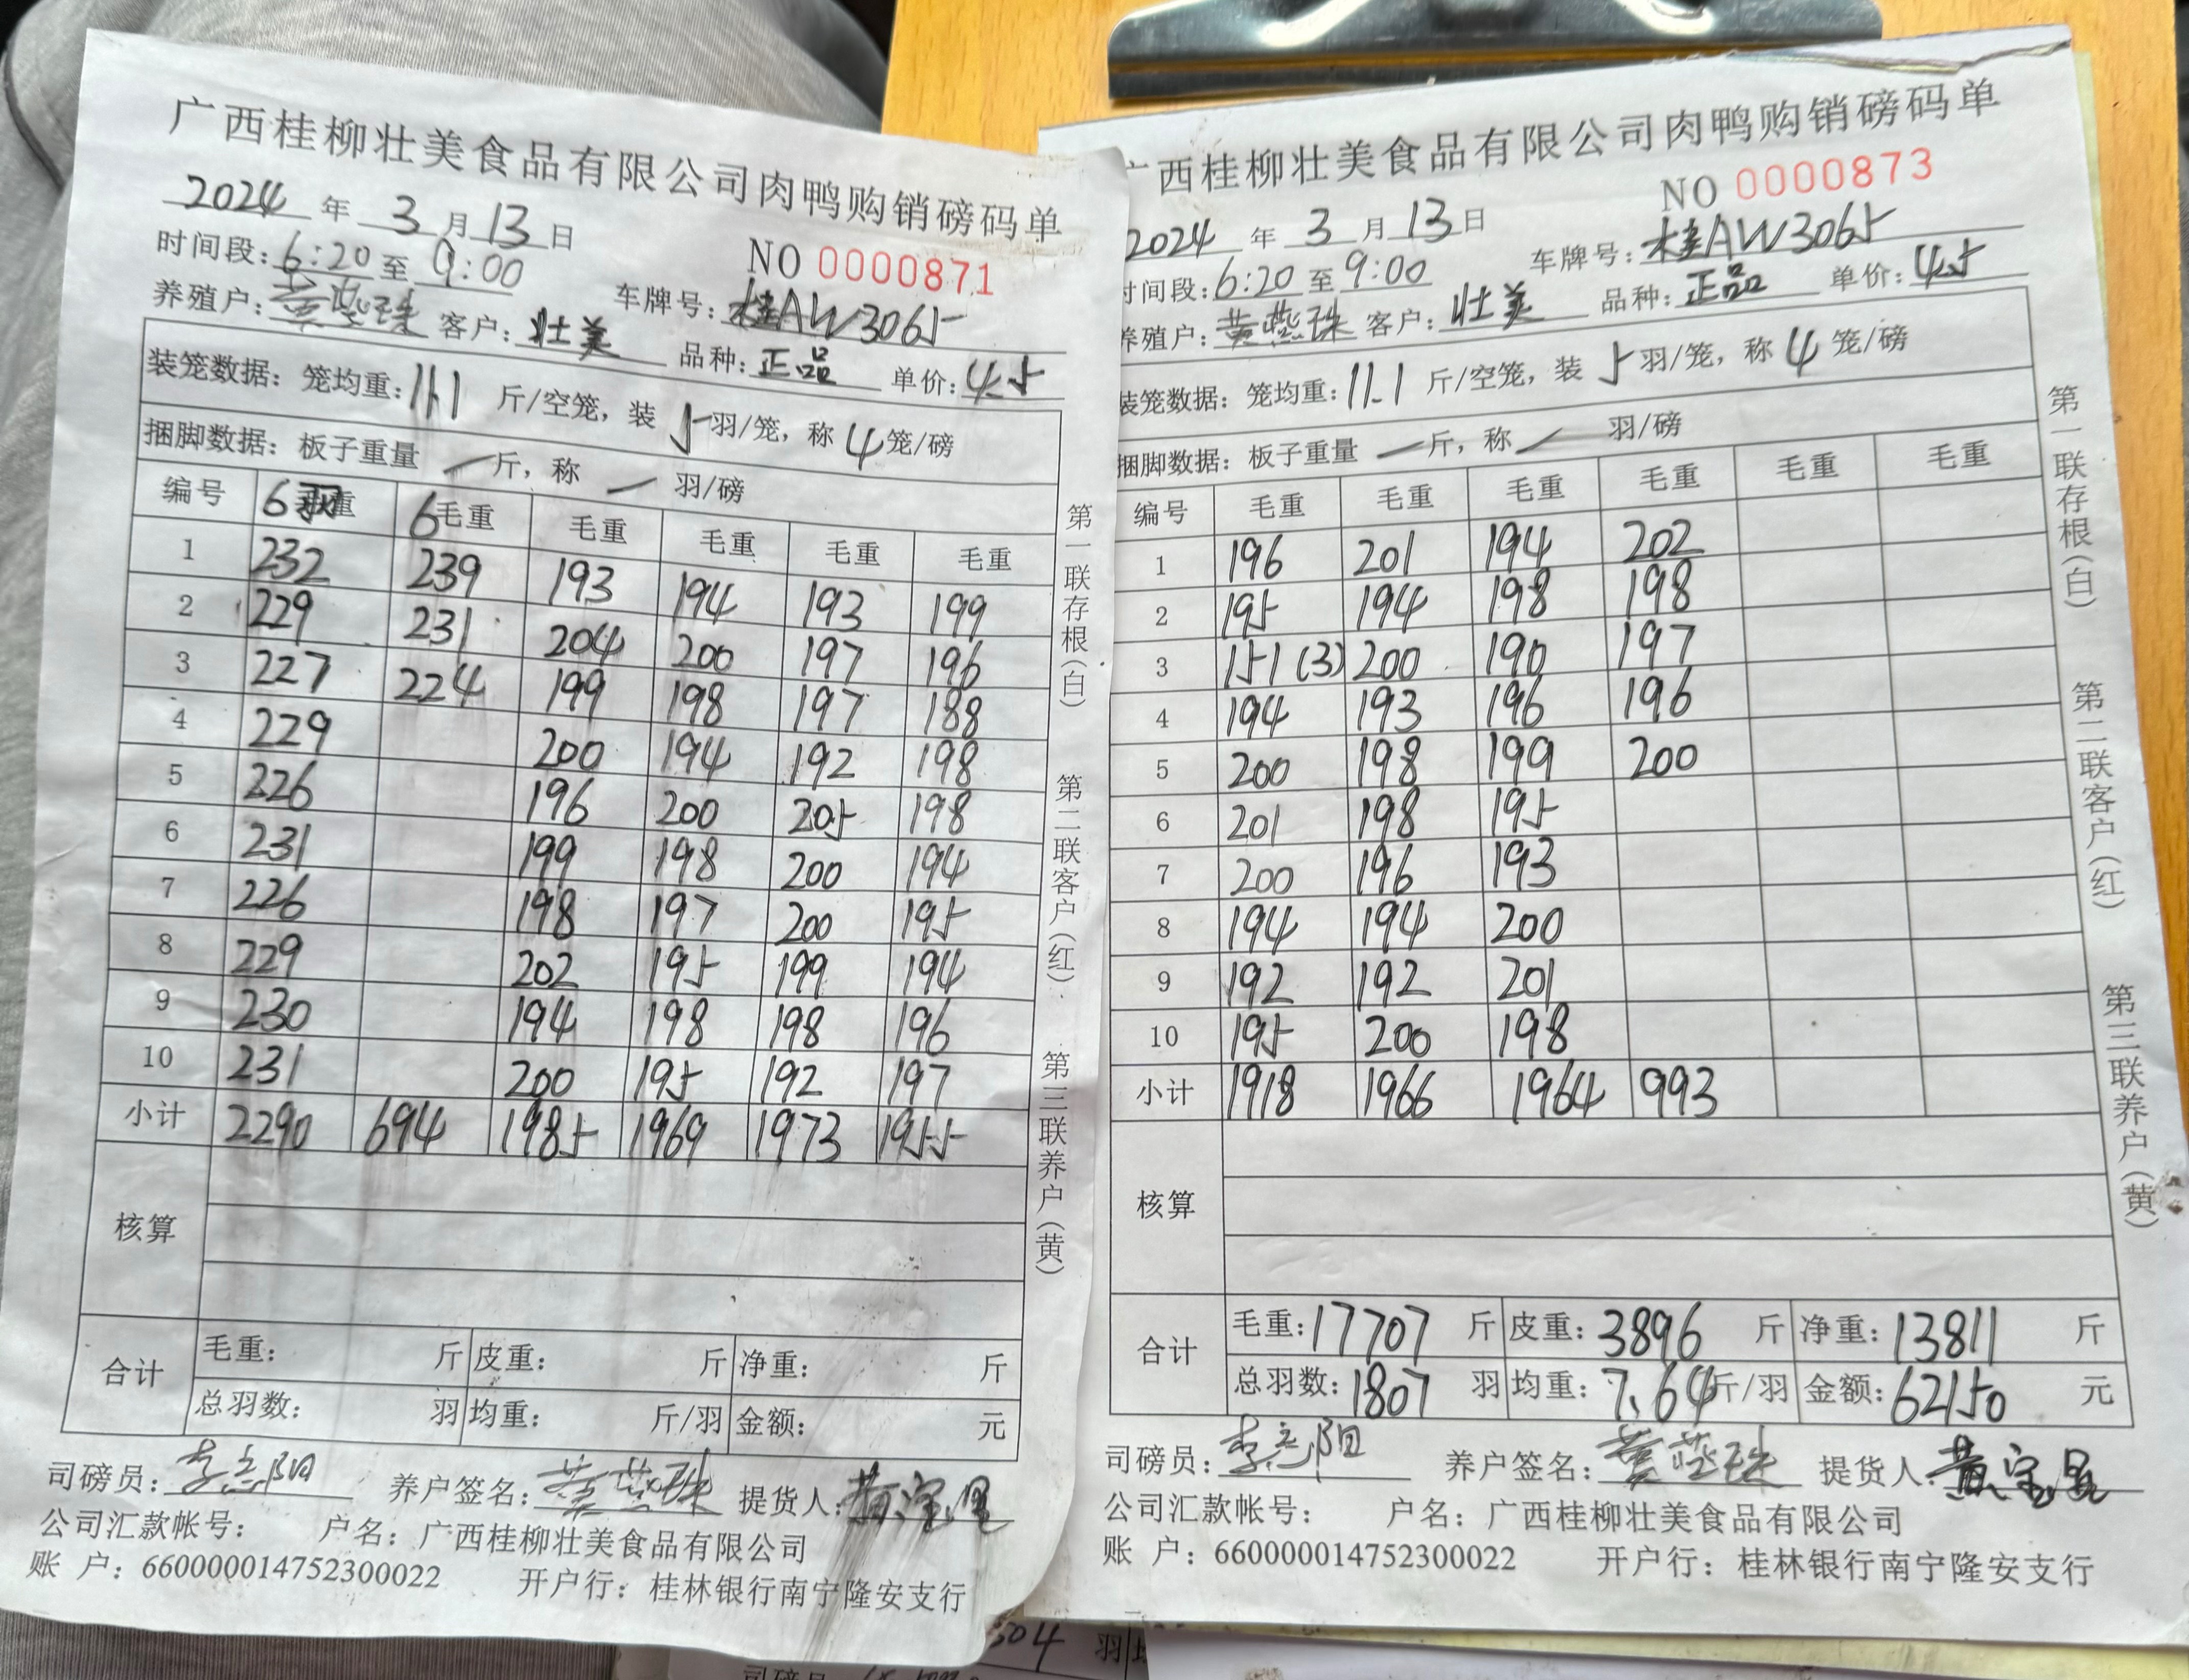 广西桂柳壮美食品有限公司肉鸭购销磅码单
2024 年 3 月 13 日
NO 0000871
时间段: 6:20 至 9:00
车牌号: 桂AW3065
养殖户: 黄燕珠 客户: 壮美 品种: 正品 单价: 4.5
装笼数据: 笼均重: 11.1 斤/空笼, 装 5 羽/笼, 称 4 笼/磅
捆脚数据: 板子重量 — 斤, 称 — 羽/磅
编号 6羽毛重 6毛重 毛重 毛重 毛重 毛重
1 232 239 193 194 193 199
2 229 231 204 200 197 196
3 227 224 199 198 197 188
4 229 200 194 192 198
5 226 196 200 205 198
6 231 199 198 200 194
7 226 198 197 200 195
8 229 202 195 199 194
9 230 194 198 198 196
10 231 200 195 192 197
小计 2290 694 1985 1969 1973 1955
核算
合计 毛重: 斤 皮重: 斤 净重: 斤
总羽数: 羽 均重: 斤/羽 金额: 元
司磅员: 李志阳 养户签名: 黄燕珠 提货人: 黄宝
公司汇款帐号: 户名: 广西桂柳壮美食品有限公司
账 户: 660000014752300022 开户行: 桂林银行南宁隆安支行
第一联存根(白) 第二联客户(红) 第三联养户(黄)
广西桂柳壮美食品有限公司肉鸭购销磅码单
NO 0000873
2024 年 3 月 13 日
时间段: 6:20 至 9:00 车牌号: 桂AW3065
养殖户: 黄燕珠 客户: 壮美 品种: 正品 单价: 4.5
装笼数据: 笼均重: 11.1 斤/空笼, 装 5 羽/笼, 称 4 笼/磅
捆脚数据: 板子重量 — 斤, 称 — 羽/磅
编号 毛重 毛重 毛重 毛重 毛重 毛重
1 196 201 194 202
2 195 194 198 198
3 151(3) 200 190 197
4 194 193 196 196
5 200 198 199 200
6 201 198 195
7 200 196 193
8 194 194 200
9 192 192 201
10 195 200 198
小计 1918 1966 1964 993
核算
合计 毛重: 17707 斤 皮重: 3896 斤 净重: 13811 斤
总羽数: 1807 羽 均重: 7.64 斤/羽 金额: 62150 元
司磅员: 李志阳 养户签名: 黄燕珠 提货人: 黄宝
公司汇款帐号: 户名: 广西桂柳壮美食品有限公司
账 户: 660000014752300022 开户行: 桂林银行南宁隆安支行
第一联存根(白) 第二联客户(红) 第三联养户(黄)
504 羽
司磅员